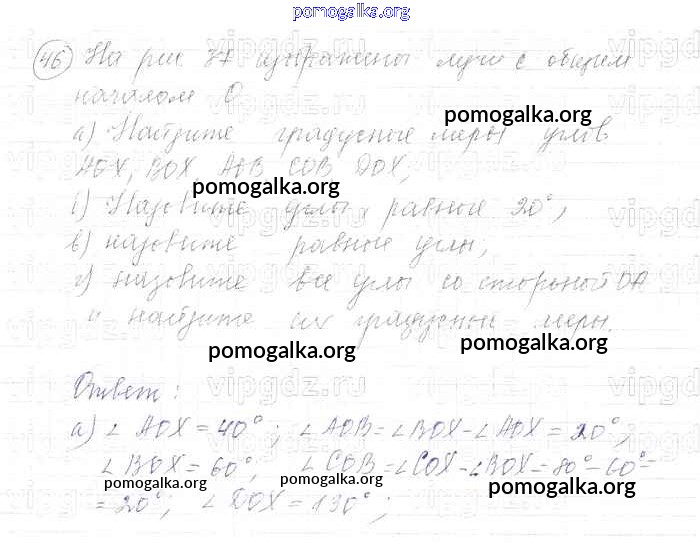 pomogalka.org
46 На рис 37 изображены лучи с общим
началом О
pomogalka.org
а) Найдите градусные меры углов
AOX, BOX, AOB, COB, DOX,
pomogalka.org
б) Назовите углы, равные 20°,
в) назовите равные углы;
г) назовите все углы со стороной OA
и найдите их градусные меры.
pomogalka.org pomogalka.org
Ответ:
а) ∠ AOX = 40°; ∠ AOB = ∠ BOX - ∠ AOX = 20°,
∠ BOX = 60°, ∠ COB = ∠ COX - ∠ BOX = 80° - 60° =
pomogalka.org pomogalka.org pomogalka.org
= 20°; ∠ DOX = 130°;